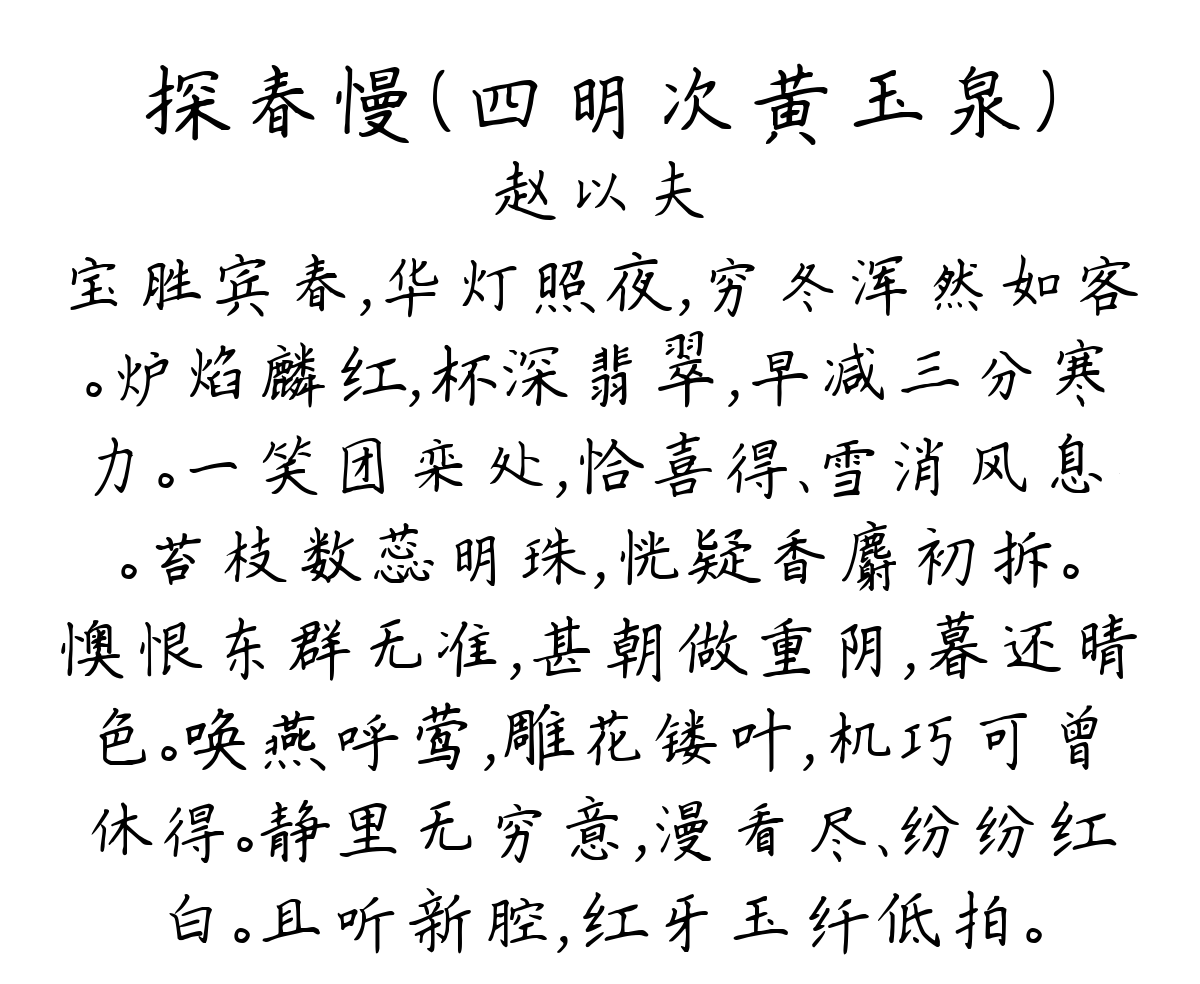 探春慢(四明次黄玉泉)
赵以夫
宝胜宾春,华灯照夜,穷冬浑然如客
。炉焰麟红,杯深翡翠,早减三分寒
力。一笑团栾处,恰喜得、雪消风息
。苔枝数蕊明珠,恍疑香麝初拆。
懊恨东群无准,甚朝做重阴,暮还晴
色。唤燕呼莺,雕花镂叶,机巧可曾
休得。静里无穷意,漫看尽、纷纷红
白。且听新腔,红牙玉纤低拍。